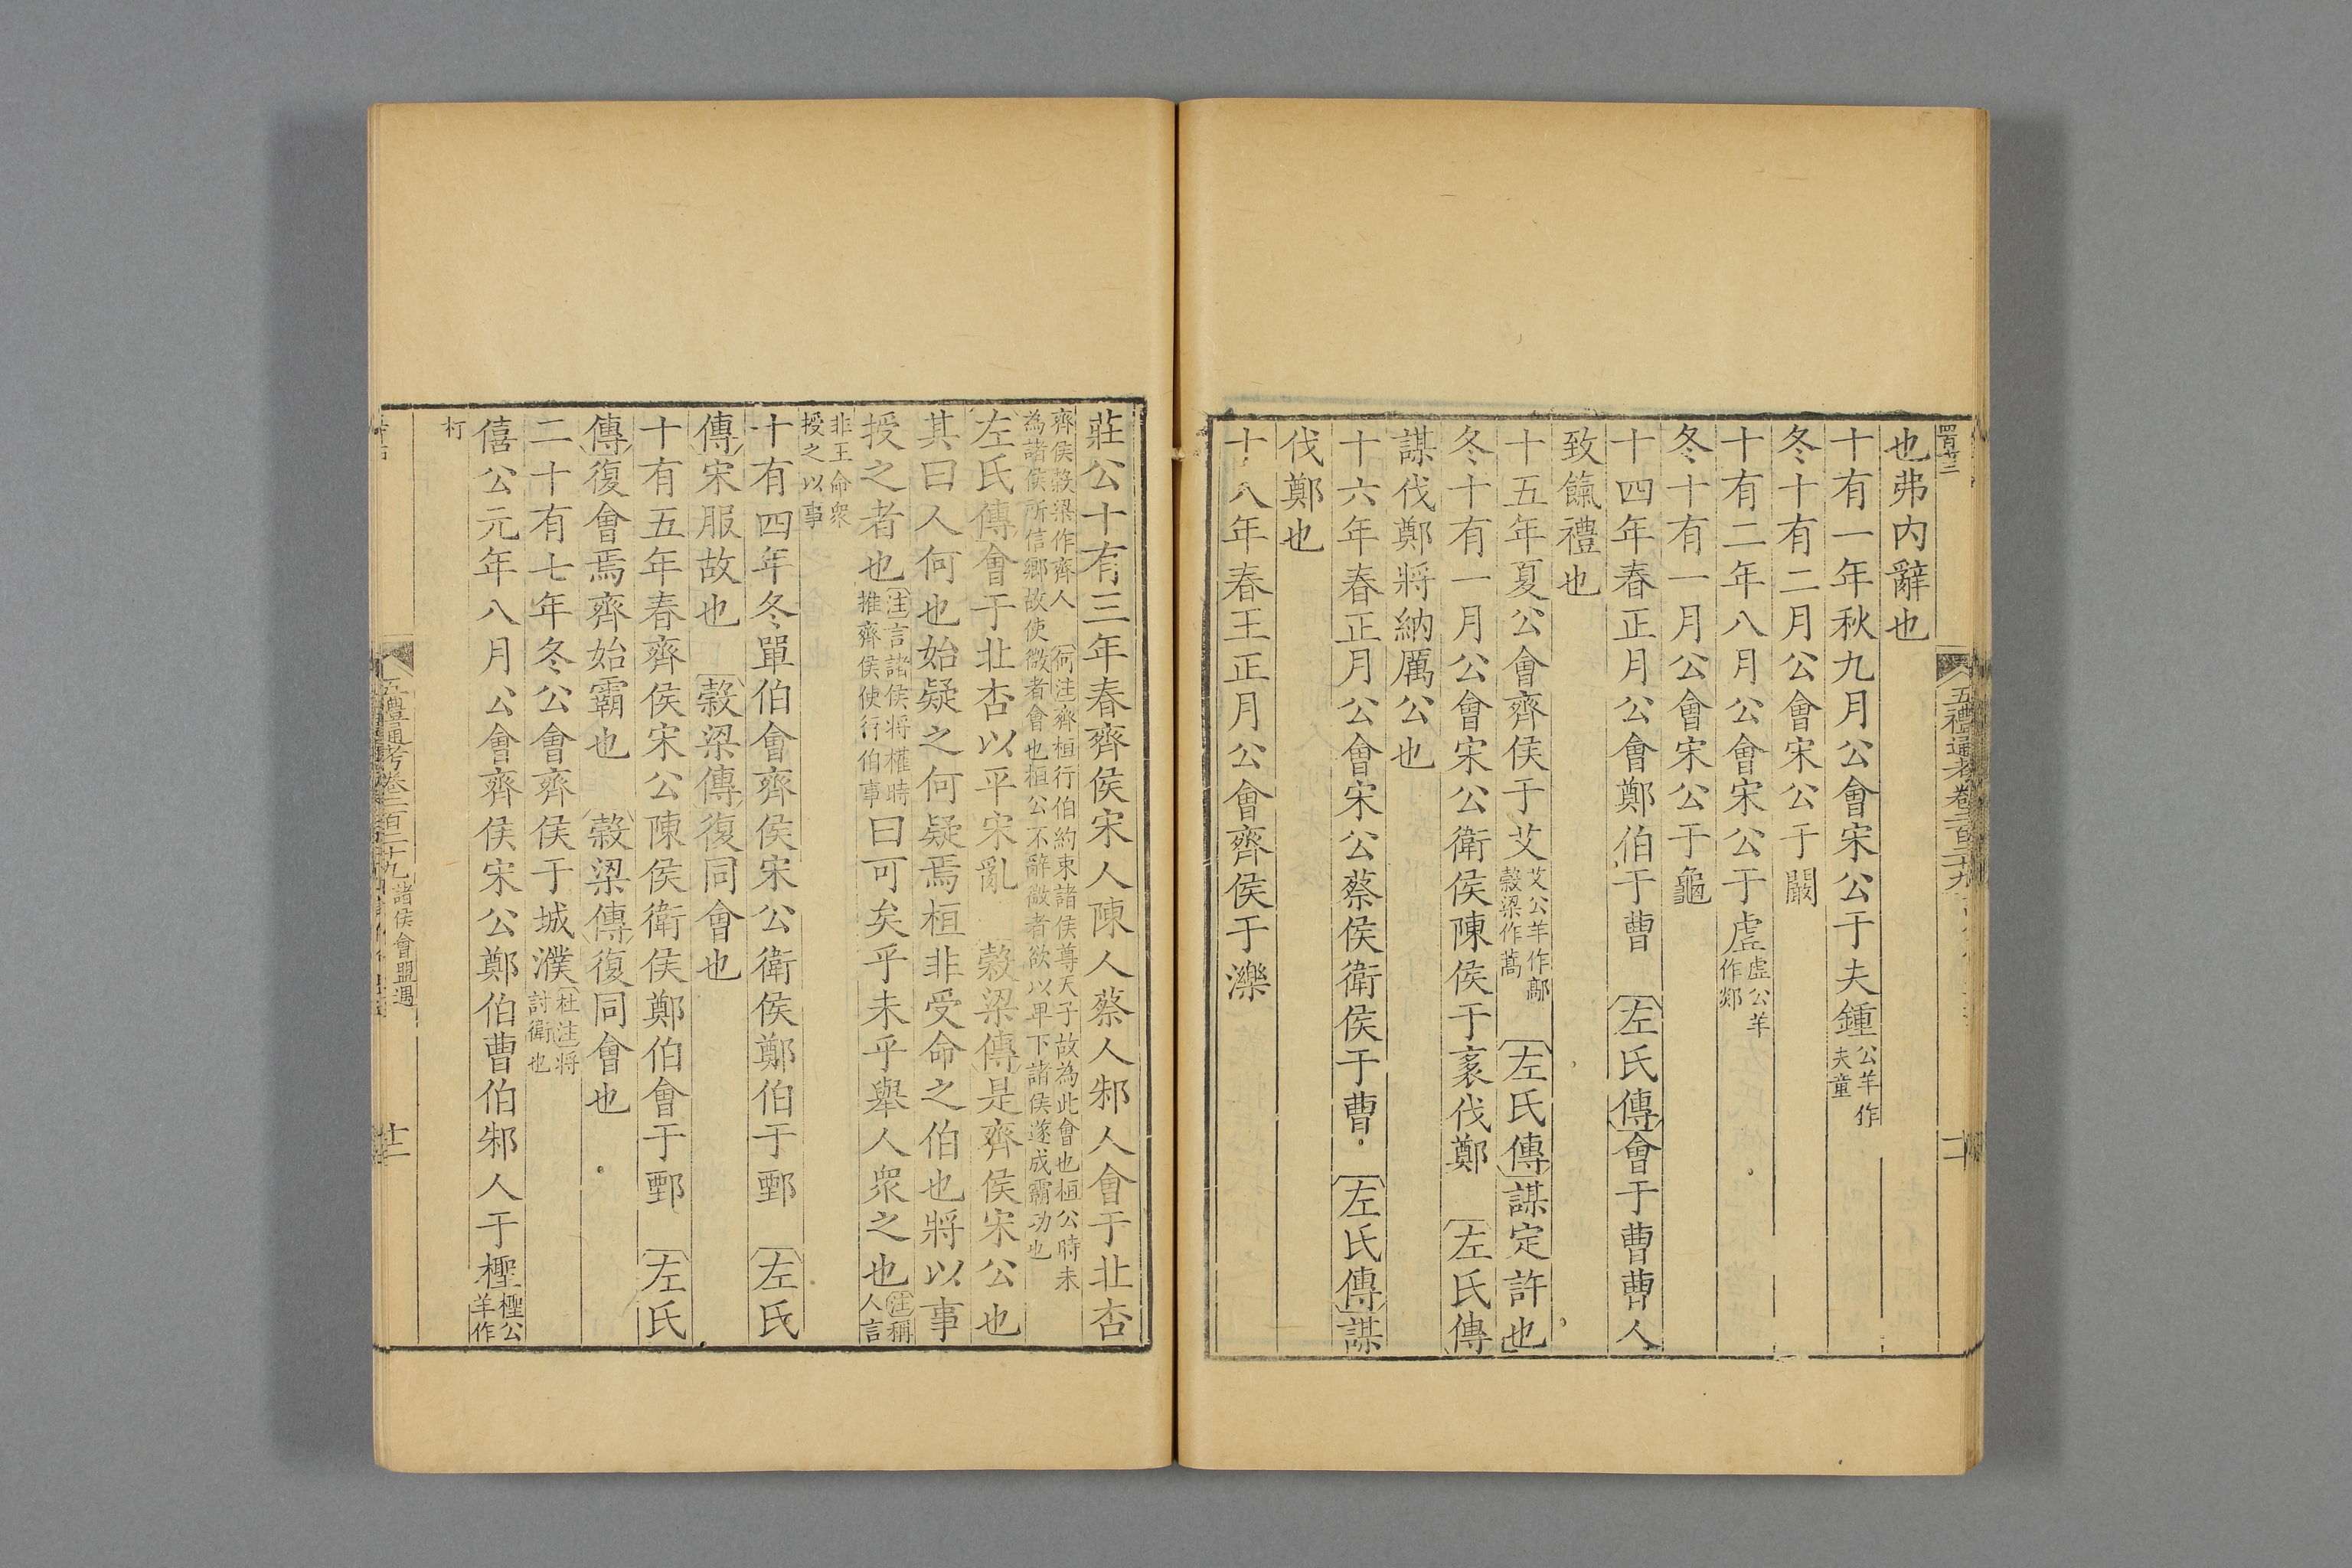 五禮通考卷二百二十九
也弗内辭也
十有一年秋九月公會宋公于夫鍾公羊作夫童
冬十有二月公會宋公于闞
十有二年八月公會宋公于虛虛公羊作郯
冬十有一月公會宋公于龜
十四年春正月公會鄭伯于曹 左氏傳會于曹曹人
致餼禮也
十五年夏公會齊侯于艾艾公羊作鄗穀梁作蒿 左氏傳謀定許也
冬十有一月公會宋公衛侯陳侯于袲伐鄭 左氏傳
謀伐鄭將納厲公也
十六年春正月公會宋公蔡侯衛侯于曹 左氏傳謀
伐鄭也
十八年春王正月公會齊侯于濼
莊公十有三年春齊侯宋人陳人蔡人邾人會于北杏
齊侯穀梁作齊人 何注齊桓行伯約束諸侯尊天子故為此會也桓公時未
為諸侯所信鄉故使微者會也桓公不辭微者欲以卑下諸侯遂成霸功也
左氏傳會于北杏以平宋亂 穀梁傳是齊侯宋公也
其曰人何也始疑之何疑焉桓非受命之伯也將以事
授之者也注言諸侯將權時推齊侯使行伯事曰可矣乎未乎舉人衆之也注稱人言
非王命衆授之以事
十有四年冬單伯會齊侯宋公衛侯鄭伯于鄄 左氏
傳宋服故也 穀梁傳復同會也
十有五年春齊侯宋公陳侯衛侯鄭伯會于鄄 左氏
傳復會焉齊始霸也 穀梁傳復同會也
二十有七年冬公會齊侯于城濮杜注將討衛也
僖公元年八月公會齊侯宋公鄭伯曹伯邾人于檉檉公羊作
朾
五禮通考卷二百二十九 諸侯會盟遇 十二